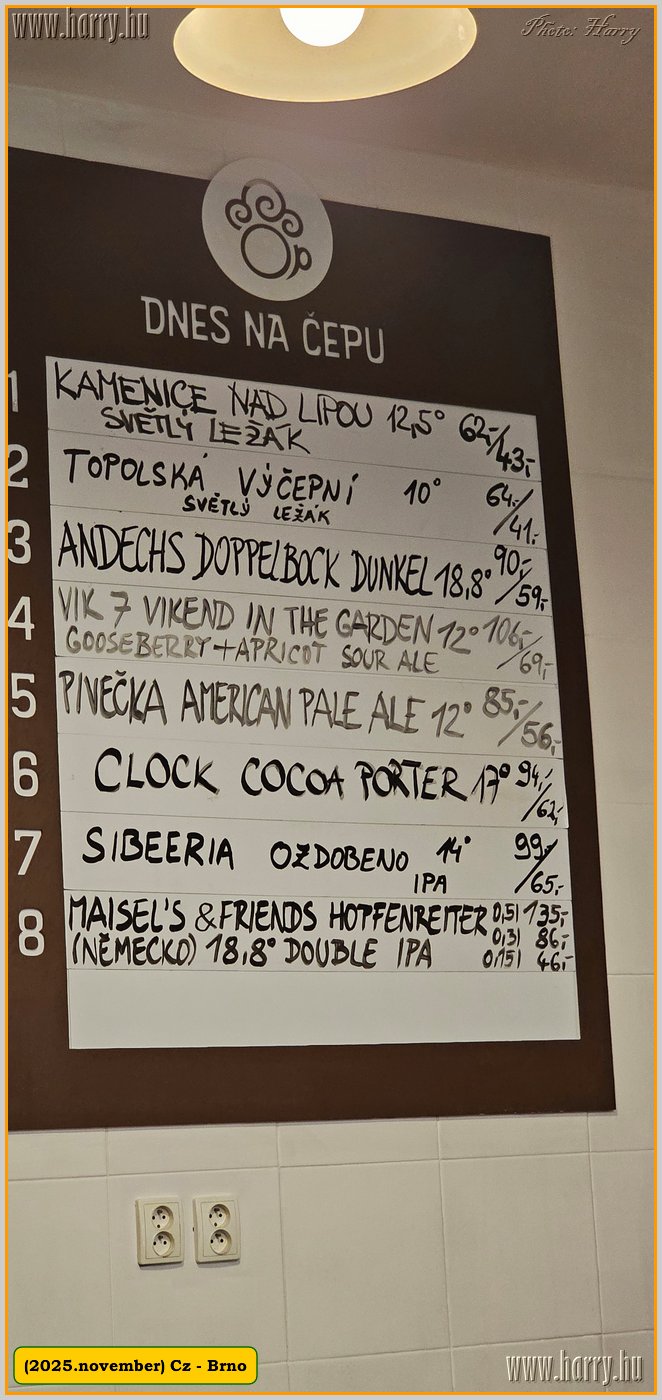 www.harry.hu
Photo: Harry
DNES NA ČEPU
1 KAMENICE NAD LIPOU 12,5° 62,-/43,-
SVĚTLÝ LEŽÁK
2 TOPOLSKÁ VÝČEPNÍ 10° 64,-/41,-
SVĚTLÝ LEŽÁK
3 ANDECHS DOPPELBOCK DUNKEL 18,8° 90,-/59,-
4 VIK 7 VIKEND IN THE GARDEN 12° 106,-/69,-
GOOSEBERRY + APRICOT SOUR ALE
5 PIVEČKA AMERICAN PALE ALE 12° 85,-/56,-
6 CLOCK COCOA PORTER 17° 94,-/62,-
7 SIBEERIA OZDOBENO 14° 99,-/65,-
IPA
8 MAISEL'S & FRIENDS HOPFENREITER 0,5l 135,-
0,3l 86,-
(NĚMECKO) 18,8° DOUBLE IPA 0,15l 46,-
(2025.november) Cz - Brno
www.harry.hu